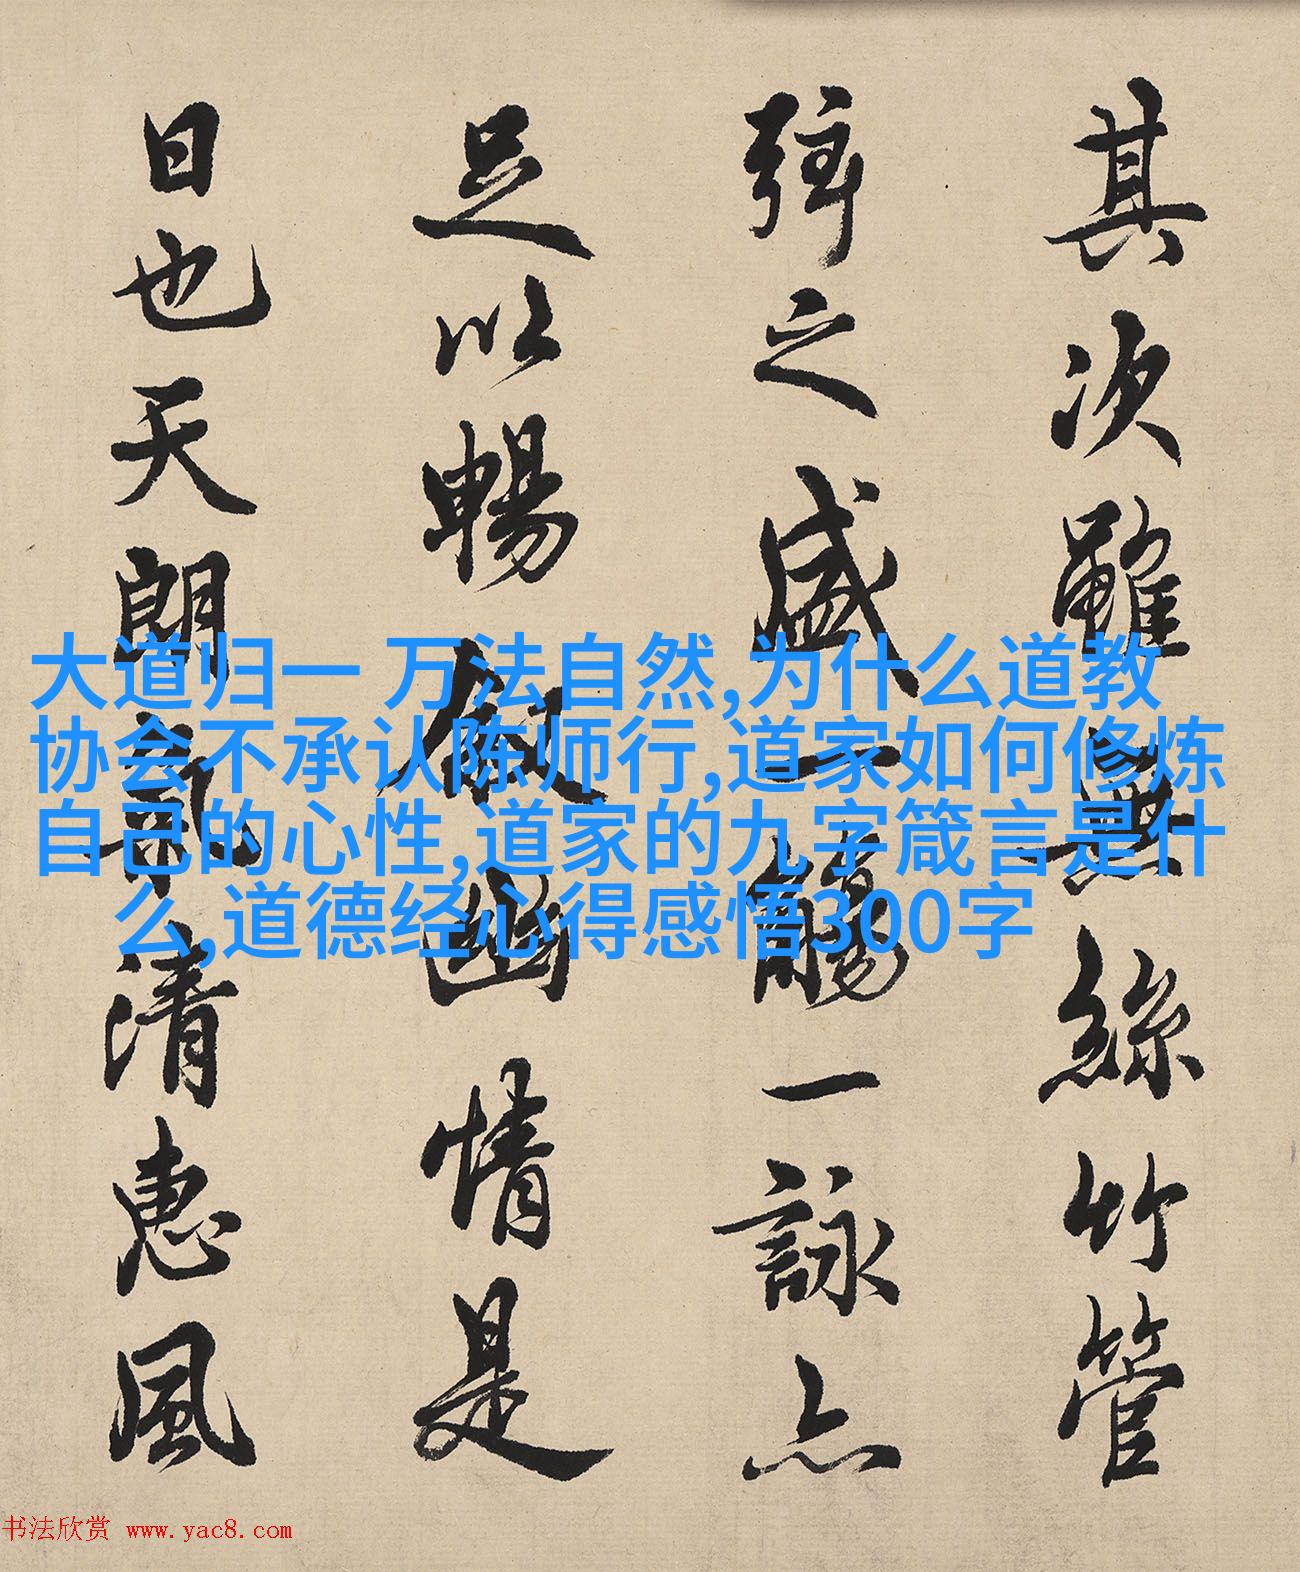 其次雖無絲竹管
弦之盛一觴一詠亦
足以暢敘幽情是
日也天朗氣清惠風
大道归一 万法自然,为什么道教
协会不承认陈师行,道家如何修炼
自己的心性,道家的九字箴言是什
么,道德经心得感悟300字
书法欣赏 www.yac8.com